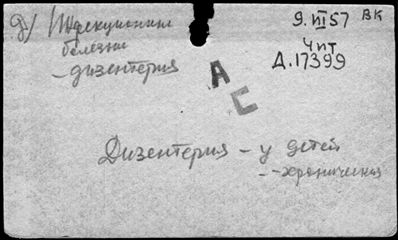 д/ Инфекционные
болезни
– дизентерия
9.III 57 ВК
Чит
Д.17399
А
С
Дизентерия – у детей
– - хроническая